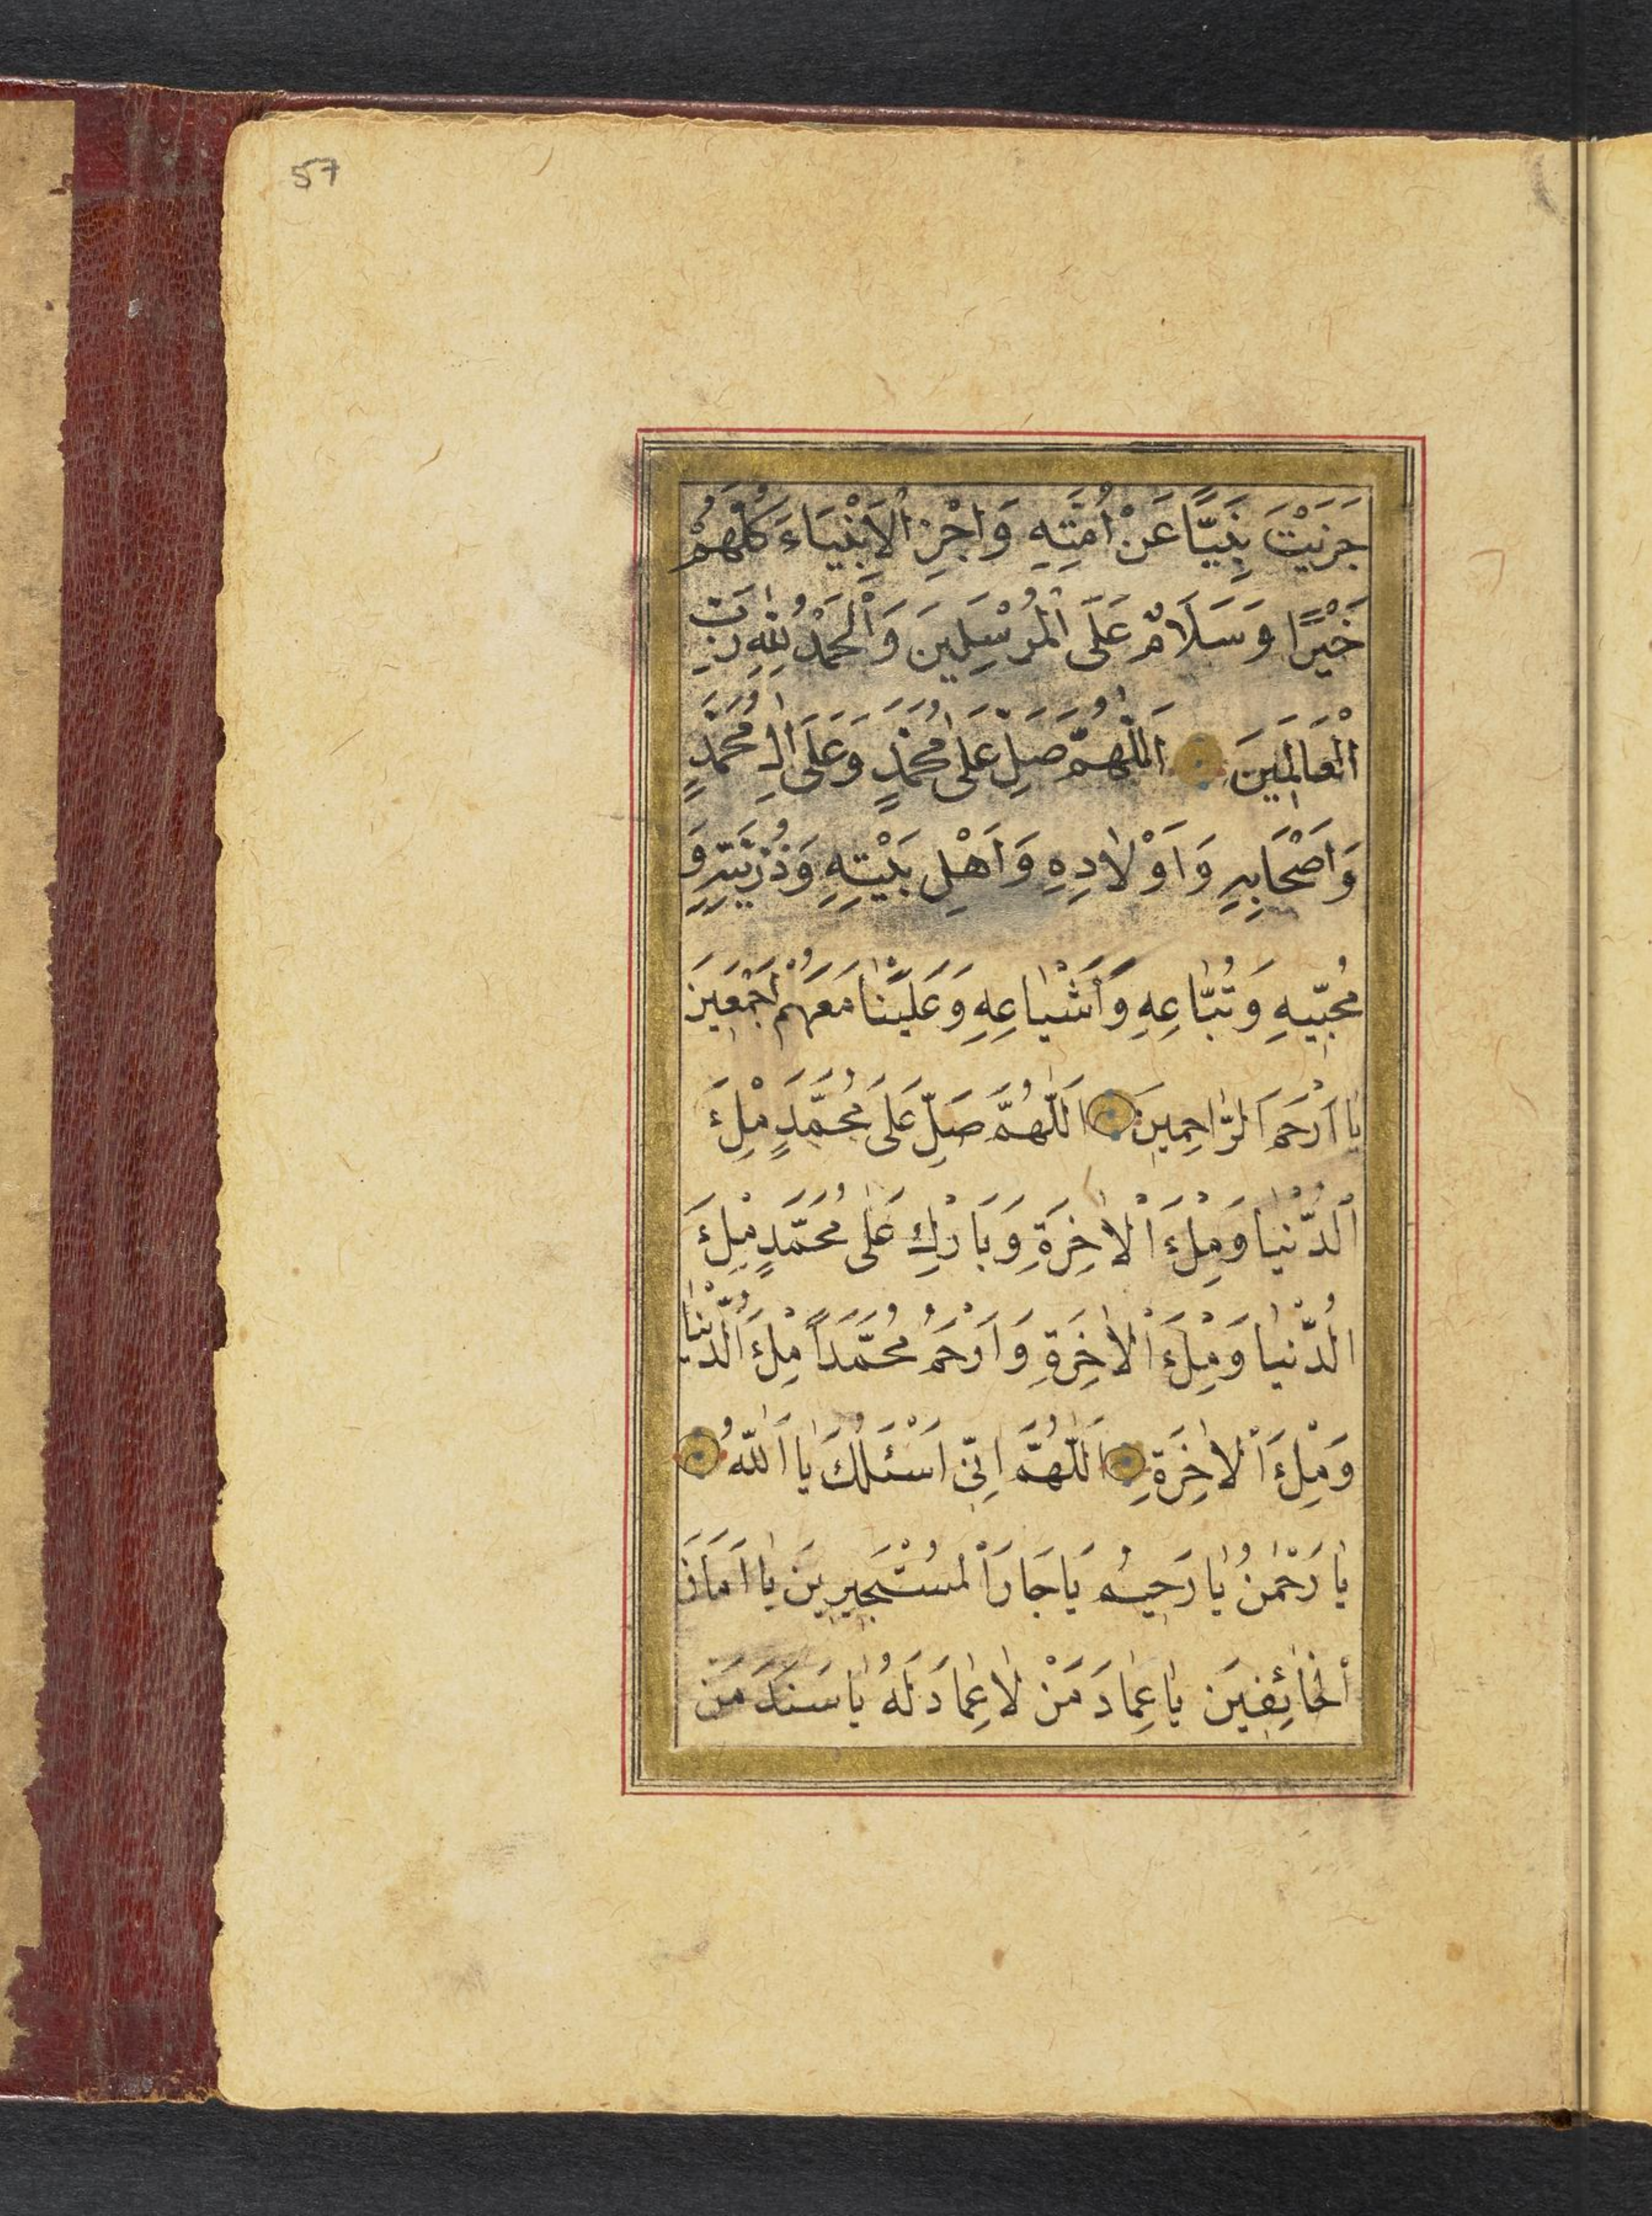 57
جَزَيْتَ نَبِيًّا عَنْ اُمَّتِهِ وَاجْزِ الْاَنْبِيَاءَ كُلَّهُمْ
خَيْرًا وَسَلَامٌ عَلَى الْمُرْسَلِينَ وَالْحَمْدُ لِلّٰهِ رَبِّ
الْعَالَمِينَ اَللّٰهُمَّ صَلِّ عَلٰى مُحَمَّدٍ وَعَلٰى اٰلِ مُحَمَّدٍ
وَاَصْحَابِهِ وَاَوْلَادِهِ وَاَهْلِ بَيْتِهِ وَذُرِّيَّتِهِ وَ
مُحِبِّيهِ وَتُبَّاعِهِ وَأَشْيَاعِهِ وَعَلَيْنَا مَعَهُمْ اَجْمَعِينَ
يَا اَرْحَمَ الرَّاحِمِينَ اَللّٰهُمَّ صَلِّ عَلَى مُحَمَّدٍ مِلْءَ
الدُّنْيَا وَمِلْءَ الْاٰخِرَةِ وَبَارِكْ عَلٰى مُحَمَّدٍ مِلْءَ
الدُّنْيَا وَمِلْءَ الْاٰخِرَةِ وَارْحَمْ مُحَمَّدًا مِلْءَ الدُّنْيَا
وَمِلْءَ الْاٰخِرَةِ اَللّٰهُمَّ اِنِّي اَسْئَلُكَ يَا اَللّٰهُ
يَا رَحْمٰنُ يَا رَحِيمُ يَا جَارَ الْمُسْتَجِيرِينَ يَا اَمَانَ
الْخَائِفِينَ يَا عِمَادَ مَنْ لَا عِمَادَ لَهُ يَا سَنَدَ مَنْ